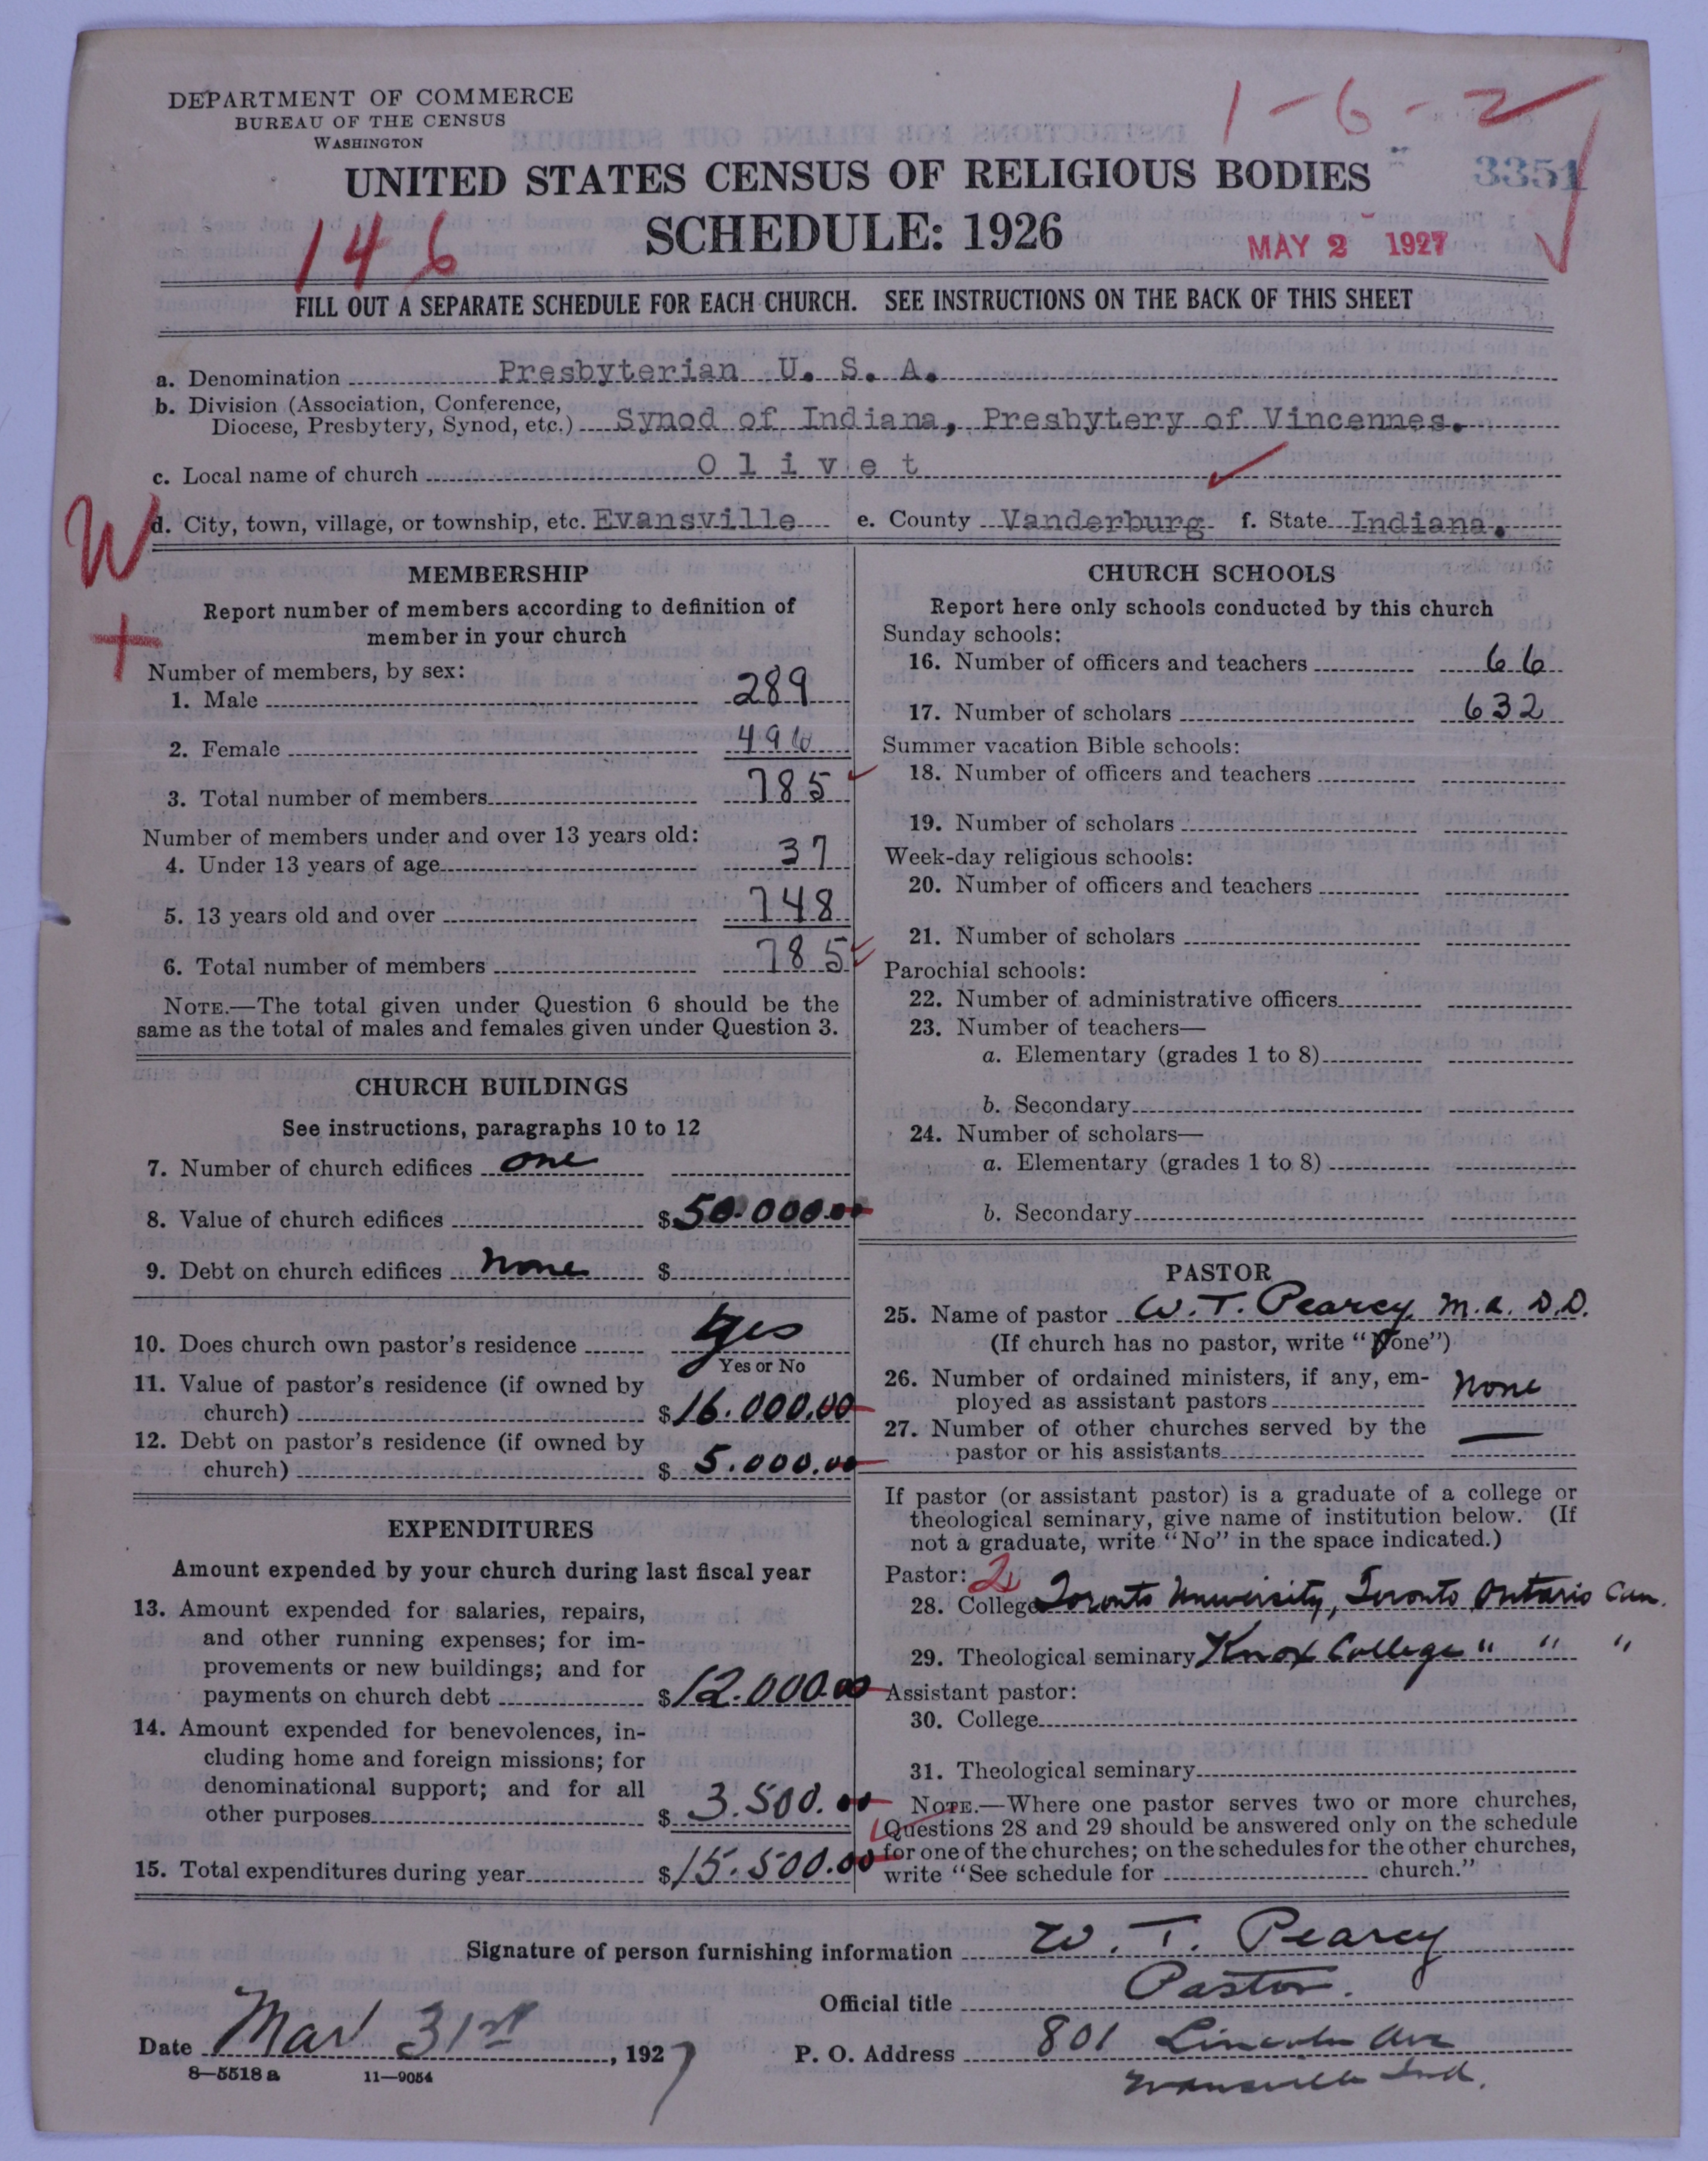 DEPARTMENT OF COMMERCE
BUREAU OF THE CENSUS
WASHINGTON
1-6-2
UNITED STATES CENSUS OF RELIGIOUS BODIES
3351
146
SCHEDULE: 1926
MAY 2 1927
FILL OUT A SEPARATE SCHEDULE FOR EACH CHURCH. SEE INSTRUCTIONS ON THE BACK OF THIS SHEET
a. Denomination Presbyterian U. S. A.
b. Division (Association, Conference,
Diocese, Presbytery, Synod, etc.) Synod of Indiana, Presbytery of Vincennes.
c. Local name of church Olivet
W
d. City, town, village, or township, etc. Evansville e. County Vanderburg f. State Indiana.
+
MEMBERSHIP
Report number of members according to definition of
member in your church
Number of members, by sex:
1. Male 289
2. Female 496
3. Total number of members 785
Number of members under and over 13 years old:
4. Under 13 years of age 37
5. 13 years old and over 748
6. Total number of members 785
NOTE.—The total given under Question 6 should be the
same as the total of males and females given under Question 3.
CHURCH BUILDINGS
See instructions, paragraphs 10 to 12
7. Number of church edifices one
8. Value of church edifices $50.000.00
9. Debt on church edifices None $
10. Does church own pastor's residence Yes
Yes or No
11. Value of pastor's residence (if owned by
church) $16.000.00
12. Debt on pastor's residence (if owned by
church) $5.000.00
EXPENDITURES
Amount expended by your church during last fiscal year
13. Amount expended for salaries, repairs,
and other running expenses; for im-
provements or new buildings; and for
payments on church debt $12.000.00
14. Amount expended for benevolences, in-
cluding home and foreign missions; for
denominational support; and for all
other purposes $3.500.00
15. Total expenditures during year $15.500.00
CHURCH SCHOOLS
Report here only schools conducted by this church
Sunday schools:
16. Number of officers and teachers 66
17. Number of scholars 632
Summer vacation Bible schools:
18. Number of officers and teachers
19. Number of scholars
Week-day religious schools:
20. Number of officers and teachers
21. Number of scholars
Parochial schools:
22. Number of administrative officers
23. Number of teachers—
a. Elementary (grades 1 to 8)
b. Secondary
24. Number of scholars—
a. Elementary (grades 1 to 8)
b. Secondary
PASTOR
25. Name of pastor W. T. Pearcy M.A. D.D.
(If church has no pastor, write "None")
26. Number of ordained ministers, if any, em-
ployed as assistant pastors None
27. Number of other churches served by the
pastor or his assistants —
If pastor (or assistant pastor) is a graduate of a college or
theological seminary, give name of institution below. (If
not a graduate, write "No" in the space indicated.)
Pastor: 2
28. College Toronto University, Toronto Ontario Can.
29. Theological seminary Knox College " " "
Assistant pastor:
30. College
31. Theological seminary
NOTE.—Where one pastor serves two or more churches,
Questions 28 and 29 should be answered only on the schedule
for one of the churches; on the schedules for the other churches,
write "See schedule for church."
Signature of person furnishing information W. T. Pearcy
Official title Pastor.
Date Mar 31st, 1927
P. O. Address 801 Lincoln Ave
Evansville Ind.
8—5518a 11—9054